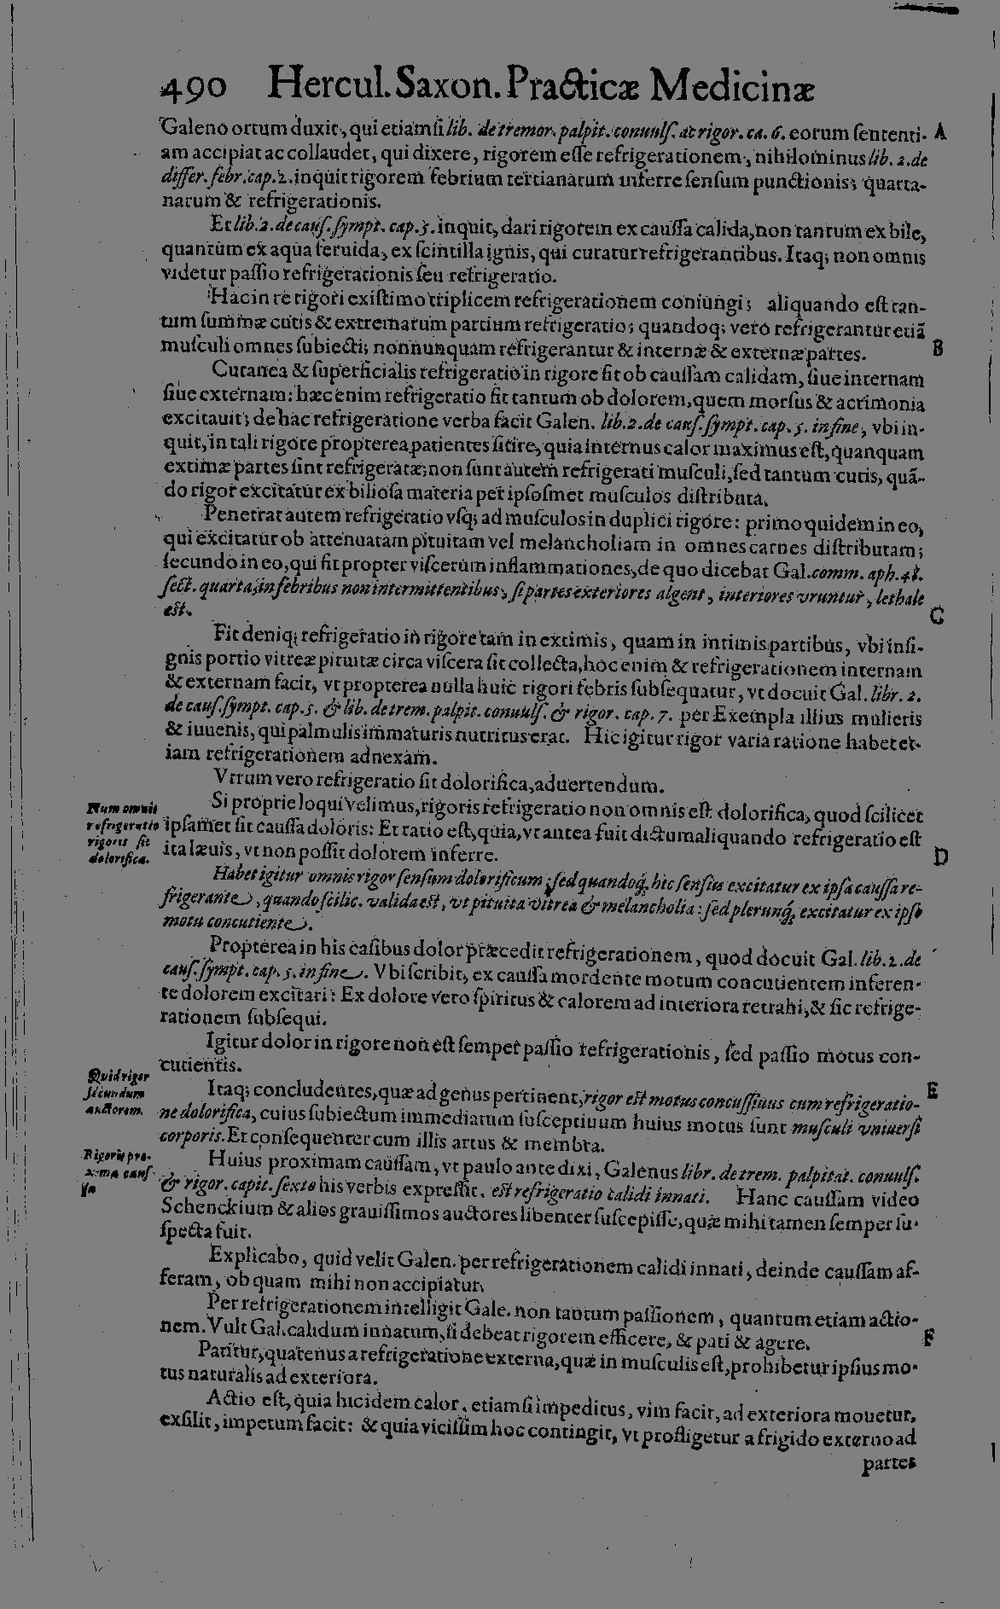 490 Hercul. Saxon. Practicæ Medicinæ
Galeno ortum duxit, qui etiamſi lib. de tremor. palpit. conuulſ. at rigor. ca. 6. eorum ſententi- A
am accipiat ac collaudet, qui dixere, rigorem eſſe refrigerationem, nihilominus lib. 2. de
differ. febr. cap. 2. inquit rigorem febrium tertianarum inferre ſenſum punctionis; quarta-
narum & refrigerationis.
Et lib. 2. de cauſ. ſympt. cap. 5. inquit, dari rigorem ex cauſſa calida, non tantum ex bile,
quantum ex aqua feruida, ex ſcintilla ignis, qui curatur refrigerantibus. Itaq; non omnis
videtur paſſio refrigerationis ſeu refrigeratio.
Hac in re rigori exiſtimo triplicem refrigerationem coniungi; aliquando eſt tan-
tum ſummæ cutis & extremarum partium refrigeratio; quandoq; vero refrigerantur etiã
muſculi omnes ſubiecti; nonnunquam refrigerantur & internæ & externæ partes. B
Cutanea & ſuperficialis refrigeratio in rigore fit ob cauſſam calidam, ſiue internam
ſiue externam: hæc enim refrigeratio fit tantum ob dolorem, quem morſus & acrimonia
excitauit; de hac refrigeratione verba facit Galen. lib. 2. de cauſ. ſympt. cap. 5. in fine, vbi in-
quit, in tali rigore propterea patientes ſitire, quia internus calor maximus eſt, quanquam
extimæ partes ſint refrigeratæ; non ſunt autem refrigerati muſculi, ſed tantum cutis, quã-
do rigor excitatur ex bilioſa materia per ipſoſmet muſculos diſtributa.
Penetrat autem refrigeratio vſq; ad muſculos in duplici rigore: primo quidem in eo,
qui excitatur ob attenuatam pituitam vel melancholiam in omnes carnes diſtributam;
ſecundo in eo, qui fit propter viſcerum inflammationes, de quo dicebat Gal. comm. aph. 48.
ſect. quarta, in febribus non intermittentibus, ſi partes exteriores algent, interiores vruntur, lethale
eſt. C
Fit deniq; refrigeratio in rigore tam in extimis, quam in intimis partibus, vbi inſi-
gnis portio vitreæ pituitæ circa viſcera ſit collecta, hoc enim & refrigerationem internam
& externam facit, vt propterea nulla huic rigori febris ſubſequatur, vt docuit Gal. libr. 2.
de cauſ. ſympt. cap. 5. & lib. de trem. palpit. conuulſ. & rigor. cap. 7. per Exempla illius mulieris
& iuuenis, qui palmulis immaturis nutritus erat. Hic igitur rigor varia ratione habet et-
iam refrigerationem adnexam.
Vtrum vero refrigeratio ſit dolorifica, aduertendum.
Num omnis
refrigeratio
rigoris ſit
dolorifica.
Si proprie loqui velimus, rigoris refrigeratio non omnis eſt dolorifica, quod ſcilicet
ipſamet ſit cauſſa doloris: Et ratio eſt, quia, vt antea fuit dictum aliquando refrigeratio eſt
ita læuis, vt non poſſit dolorem inferre. D
Habet igitur omnis rigor ſenſum dolorificum; ſed quandoq; hic ſenſus excitatur ex ipſa cauſſa re-
frigerante, quando ſcilic. valida eſt, vt pituita vitrea & melancholia: ſed plerunq; excitatur ex ipſo
motu concutiente.
Propterea in his caſibus dolor præcedit refrigerationem, quod docuit Gal. lib. 2. de
cauſ. ſympt. cap. 5. in fine. Vbi ſcribit, ex cauſſa mordente motum concutientem inferen-
te dolorem excitari: Ex dolore vero ſpiritus & calorem ad interiora retrahi, & ſic refrige-
rationem ſubſequi.
Igitur dolor in rigore non eſt ſemper paſſio refrigerationis, ſed paſſio motus con-
cutientis.
Quid rigor
ſecundum
auctorem.
Itaq; concludentes, quæ ad genus pertinent, rigor eſt motus concuſſiuus cum refrigeratio- E
ne dolorifica, cuius ſubiectum immediatum ſuſceptiuum huius motus ſunt muſculi vniuerſi
corporis. Et conſequenter cum illis artus & membra.
Rigoris pro-
xima cauſ-
ſa
Huius proximam cauſſam, vt paulo ante dixi, Galenus libr. de trem. palpitat. conuulſ.
& rigor. capit. ſexto his verbis expreſſit, eſt refrigeratio calidi innati. Hanc cauſſam video
Schenckium & alios grauiſſimos auctores libenter ſuſcepiſſe, quæ mihi tamen ſemper ſu-
ſpecta fuit.
Explicabo, quid velit Galen. per refrigerationem calidi innati, deinde cauſſam af-
feram, ob quam mihi non accipiatur.
Per refrigerationem intelligit Gale. non tantum paſſionem, quantum etiam actio-
nem. Vult Gal. calidum innatum, ſi debeat rigorem efficere, & pati & agere. F
Patitur, quatenus a refrigeratione externa, quæ in muſculis eſt, prohibetur ipſius mo-
tus naturalis ad exteriora.
Actio eſt, quia ſucidem calor, etiamſi impeditus, vim facit, ad exteriora mouetur,
exſilit, impetum facit: & quia viciſſim hoc contingit, vt profligetur a frigido externo ad
partes